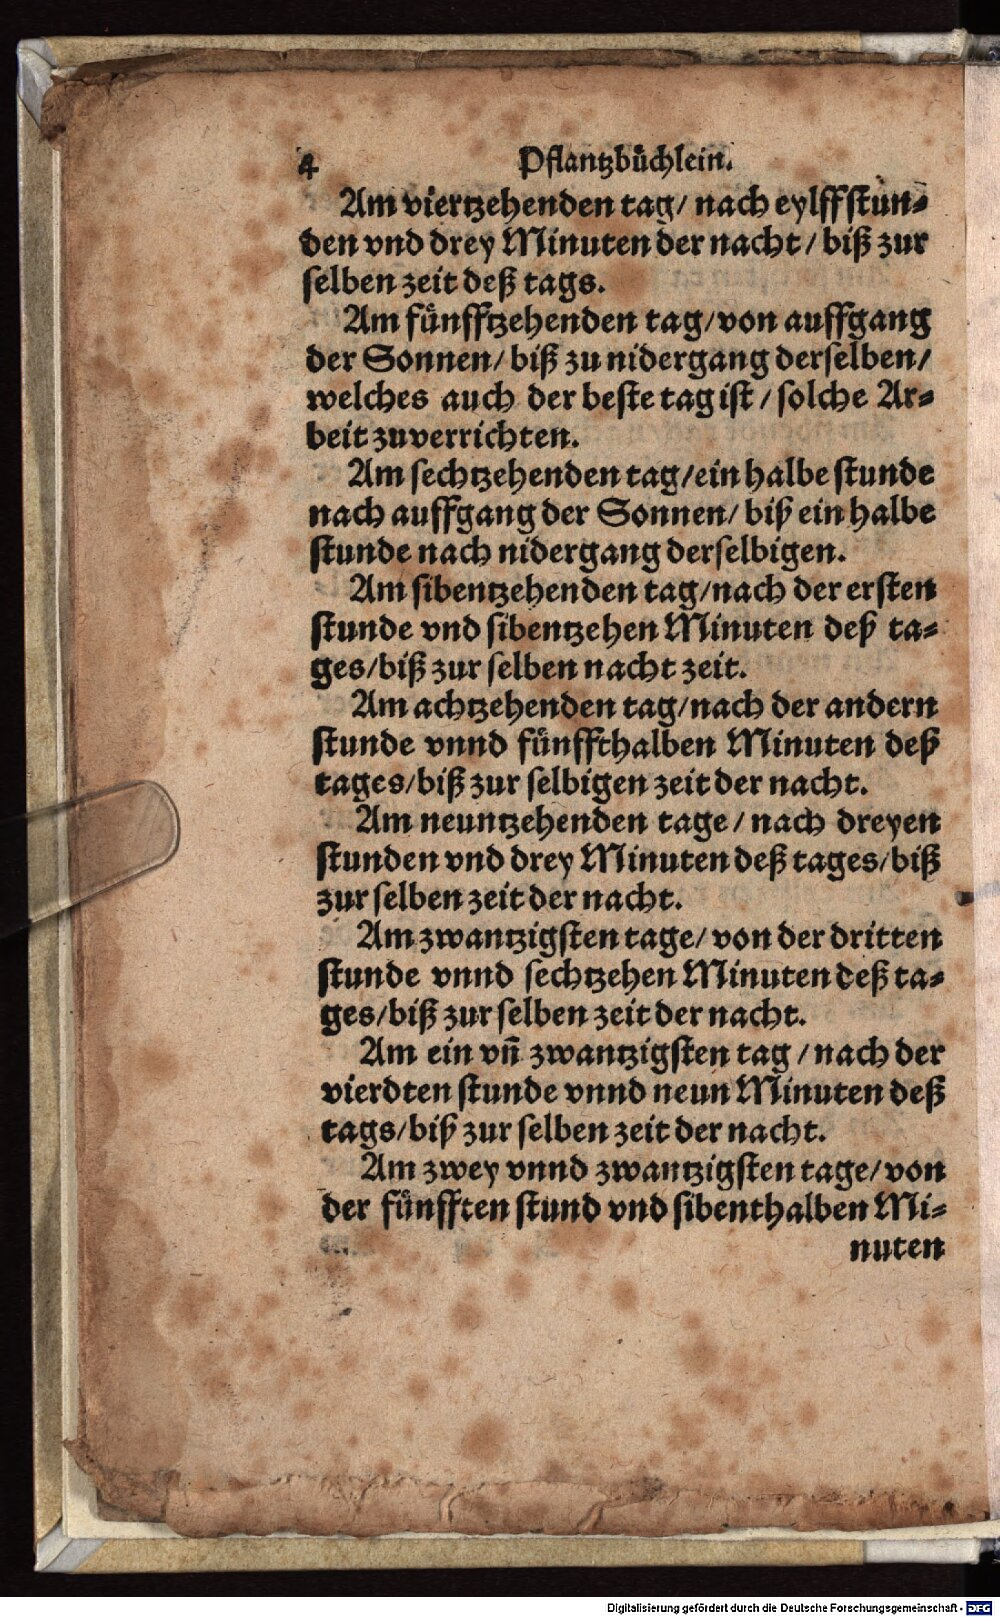 4 Pflantzbüchlein.
Am viertzehenden tag/ nach eylff stun⸗
den vnd drey Minuten der nacht / biß zur
selben zeit deß tags.
Am fünfftzehenden tag/ von auffgang
der Sonnen/ biß zu nidergang derselben/
welches auch der beste tag ist / solche Ar⸗
beit zuverrichten.
Am sechtzehenden tag/ ein halbe stunde
nach auffgang der Sonnen/ biß ein halbe
stunde nach nidergang derselbigen.
Am sibentzehenden tag/ nach der ersten
stunde vnd sibentzehen Minuten deß ta⸗
ges/ biß zur selben nacht zeit.
Am achtzehenden tag/ nach der andern
stunde vnnd fünffthalben Minuten deß
tages/ biß zur selbigen zeit der nacht.
Am neuntzehenden tage / nach dreyen
stunden vnd drey Minuten deß tages/ biß
zur selben zeit der nacht.
Am zwantzigsten tage/ von der dritten
stunde vnnd sechtzehen Minuten deß ta⸗
ges/ biß zur selben zeit der nacht.
Am ein vñ zwantzigsten tag / nach der
vierdten stunde vnnd neun Minuten deß
tags/ biß zur selben zeit der nacht.
Am zwey vnnd zwantzigsten tage/ von
der fünfften stund vnd sibenthalben Mi⸗
nuten
Digitalisierung gefördert durch die Deutsche Forschungsgemeinschaft - DFG